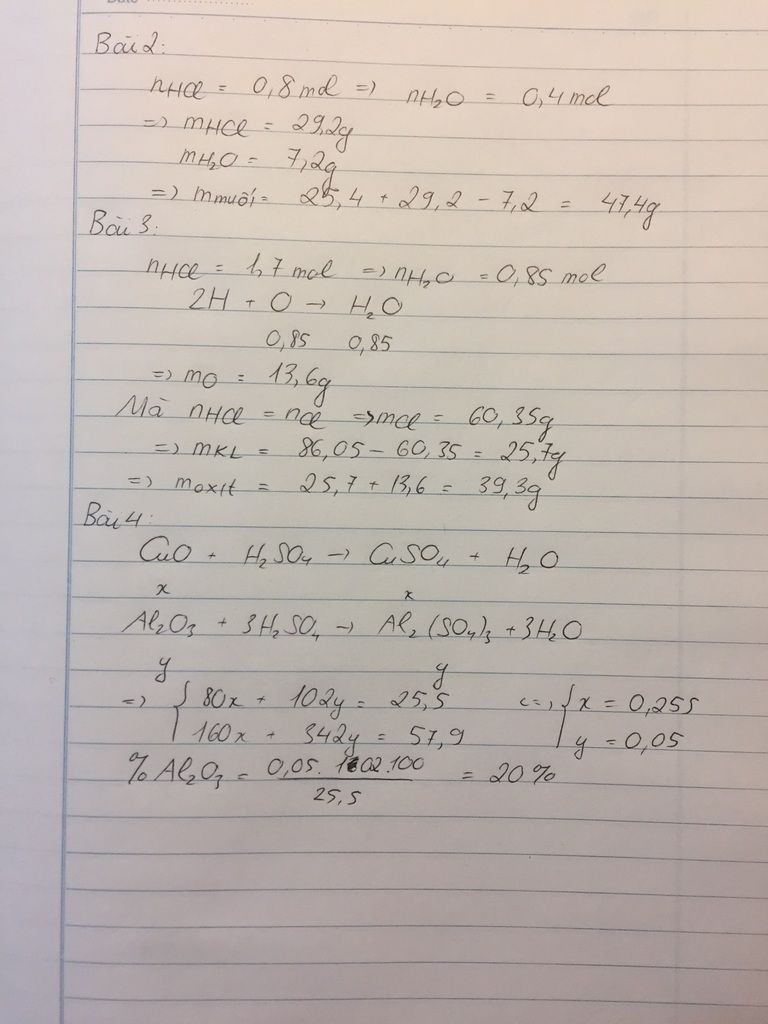 Bài 2:
nHCl = 0,8 mol => nH₂O = 0,4 mol
=> mHCl = 29,2g
mH₂O = 7,2g
=> mmuối = 25,4 + 29,2 - 7,2 = 47,4g
Bài 3:
nHCl = 1,7 mol => nH₂O = 0,85 mol
2H + O → H₂O
0,85 0,85
=> mO = 13,6g
Mà nHCl = nCl => mCl = 60,35g
=> mKL = 86,05 - 60,35 = 25,7g
=> moxit = 25,7 + 13,6 = 39,3g
Bài 4:
CuO + H₂SO₄ → CuSO₄ + H₂O
x x
Al₂O₃ + 3H₂SO₄ → Al₂(SO₄)₃ + 3H₂O
y y
=> { 80x + 102y = 25,5 <=> { x = 0,255
160x + 342y = 57,9 y = 0,05
% Al₂O₃ = 0,05. 102.100 = 20%
25,5